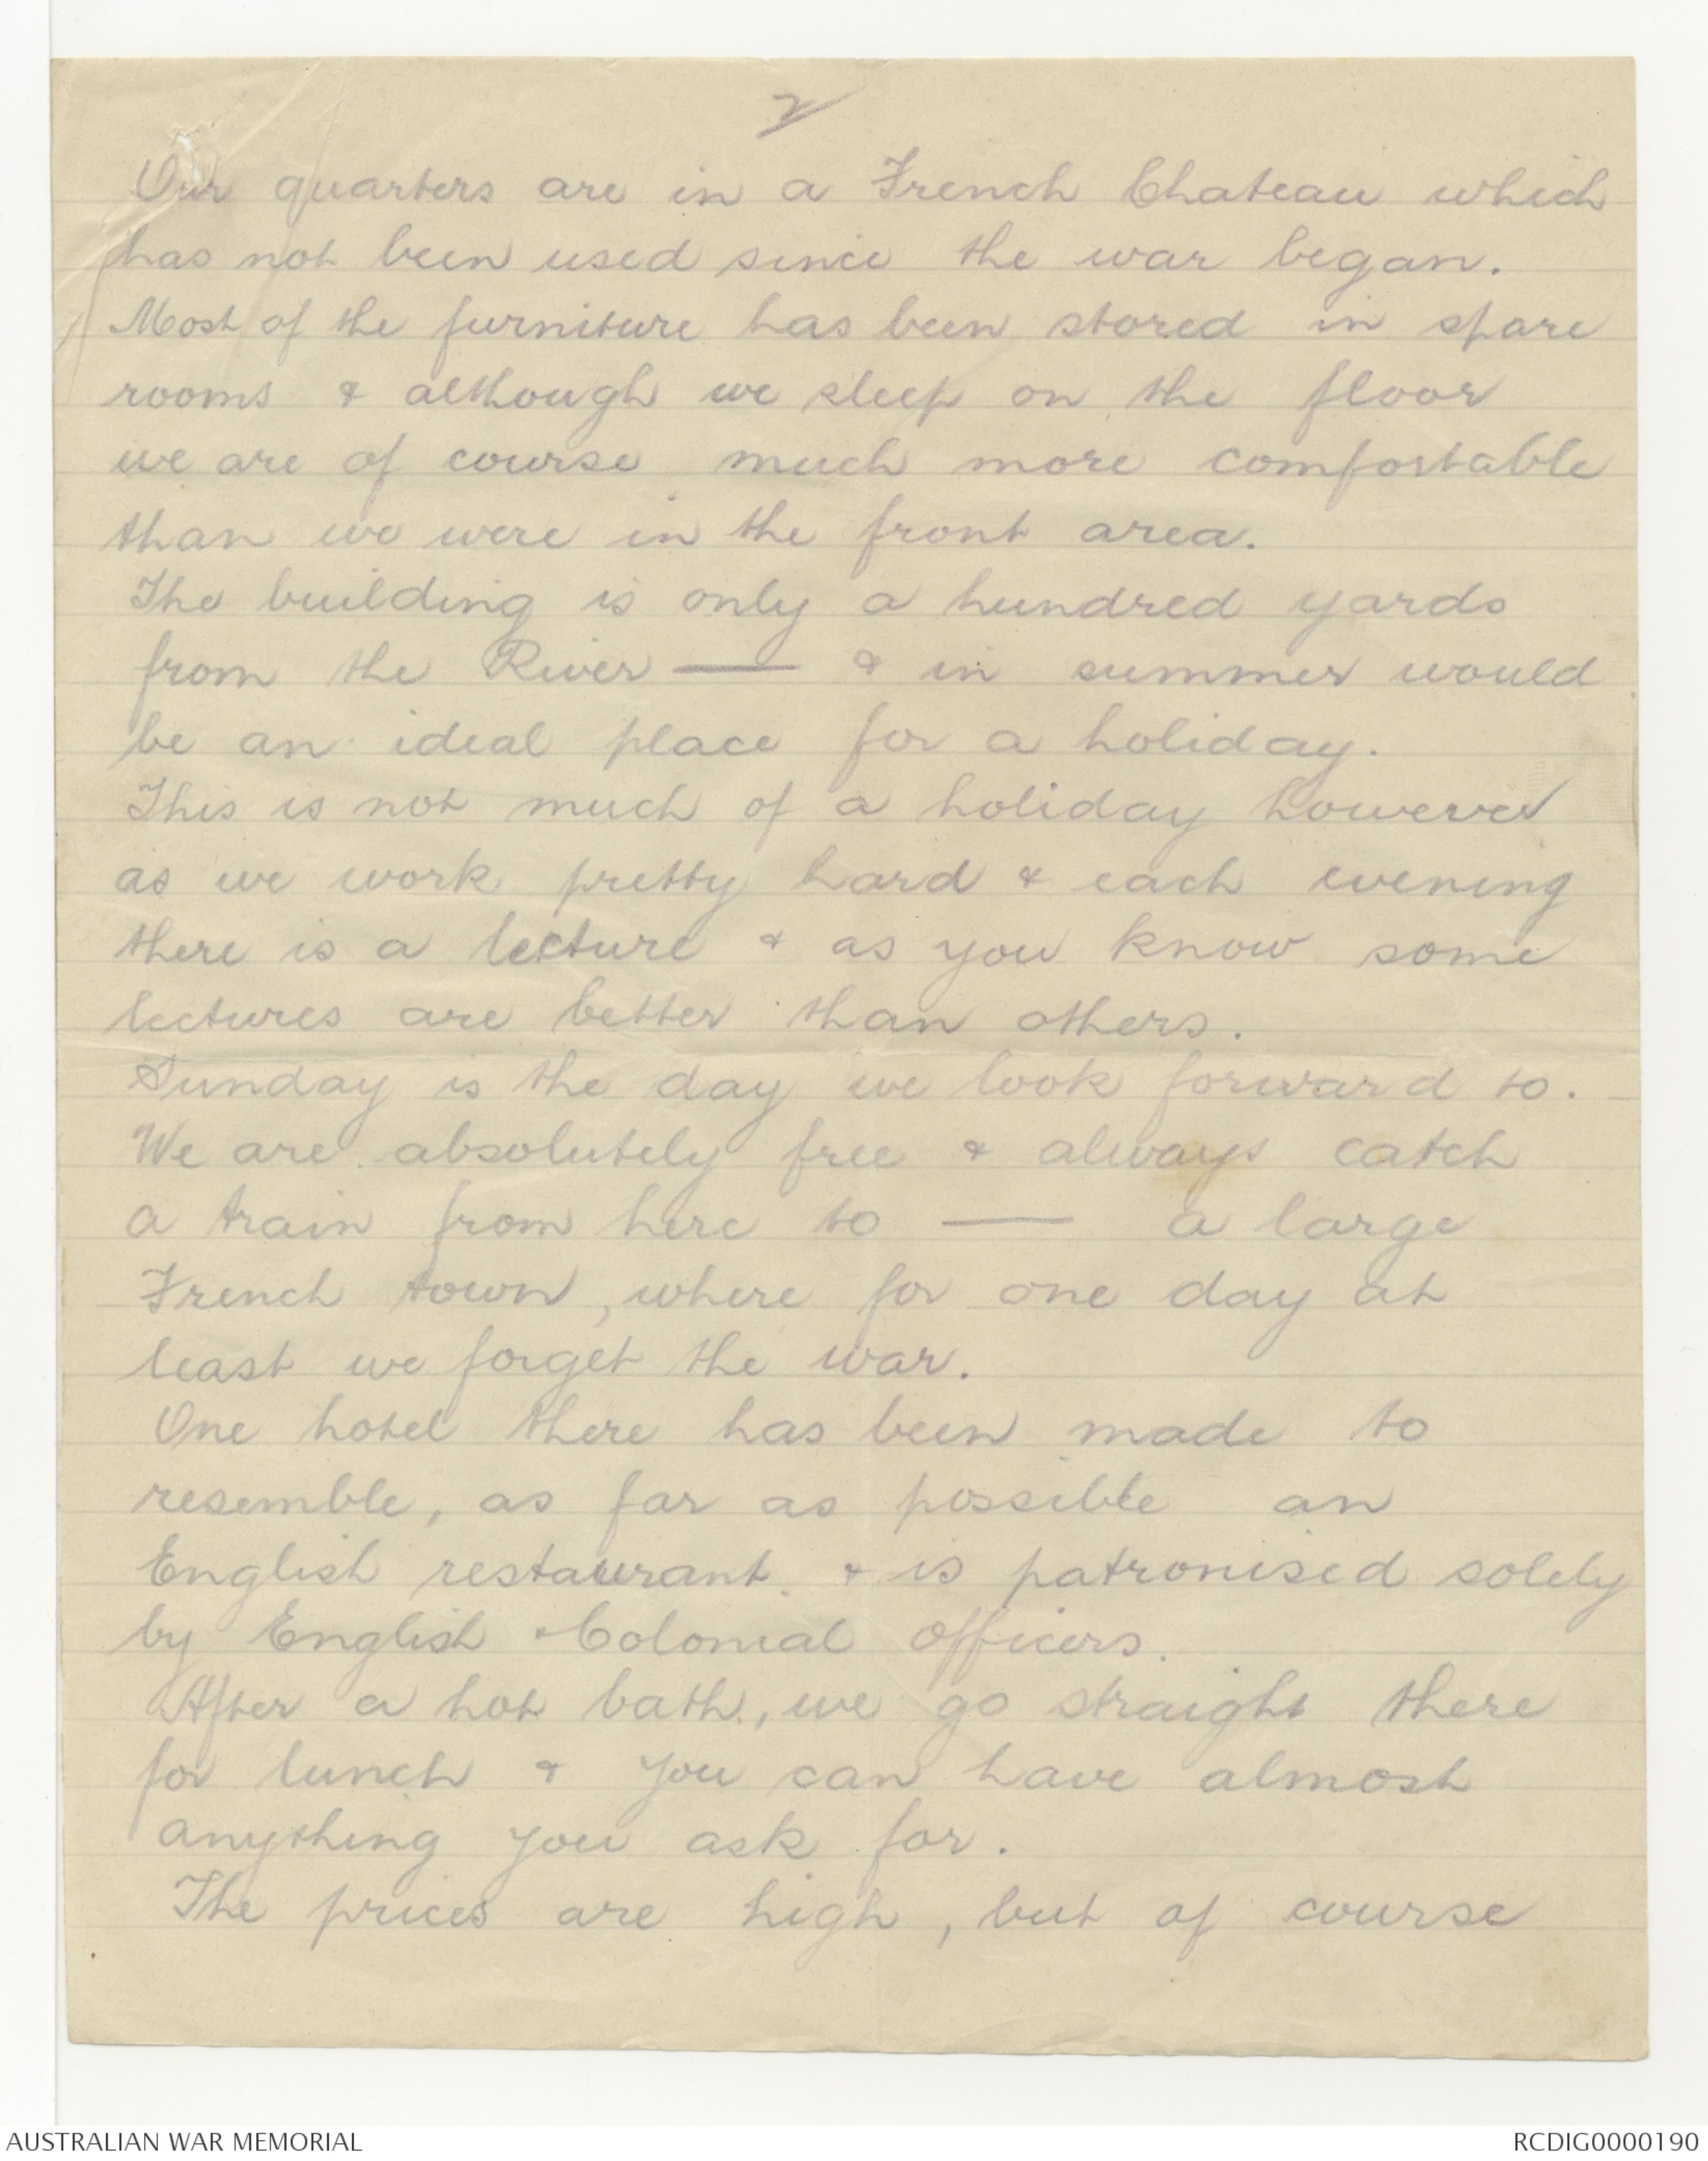 2
Our quarters are in a French Chateau which
has not been used since the war began.
Most of the furniture has been stored in spare
rooms & although we sleep on the floor
we are of course much more comfortable
than we were in the front area.
The building is only a hundred yards
from the River —— & in summer would
be an ideal place for a holiday.
This is not much of a holiday however
as we work pretty hard & each evening
there is a lecture & as you know some
lectures are better than others.
Sunday is the day we look forward to.
We are absolutely free & always catch
a train from here to —— a large
French town, where for one day at
least we forget the war.
One hotel there has been made to
resemble, as far as possible an
English restaurant. & is patronised solely
by English & Colonial officers.
After a hot bath, we go straight there
for lunch & you can have almost
anything you ask for.
The prices are high, but of course
AUSTRALIAN WAR MEMORIAL
RCDIG0000190